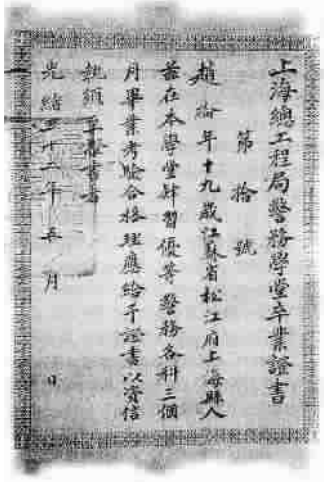 上海總工程局警務學堂卒業證書
第拾號
趙　年十九歲江蘇省松江府上海縣人
茲在本學堂肄習優等警務各科三個
月畢業考驗合格理應給予證書以資信
執須至證書者
光緒三十二年五月　日